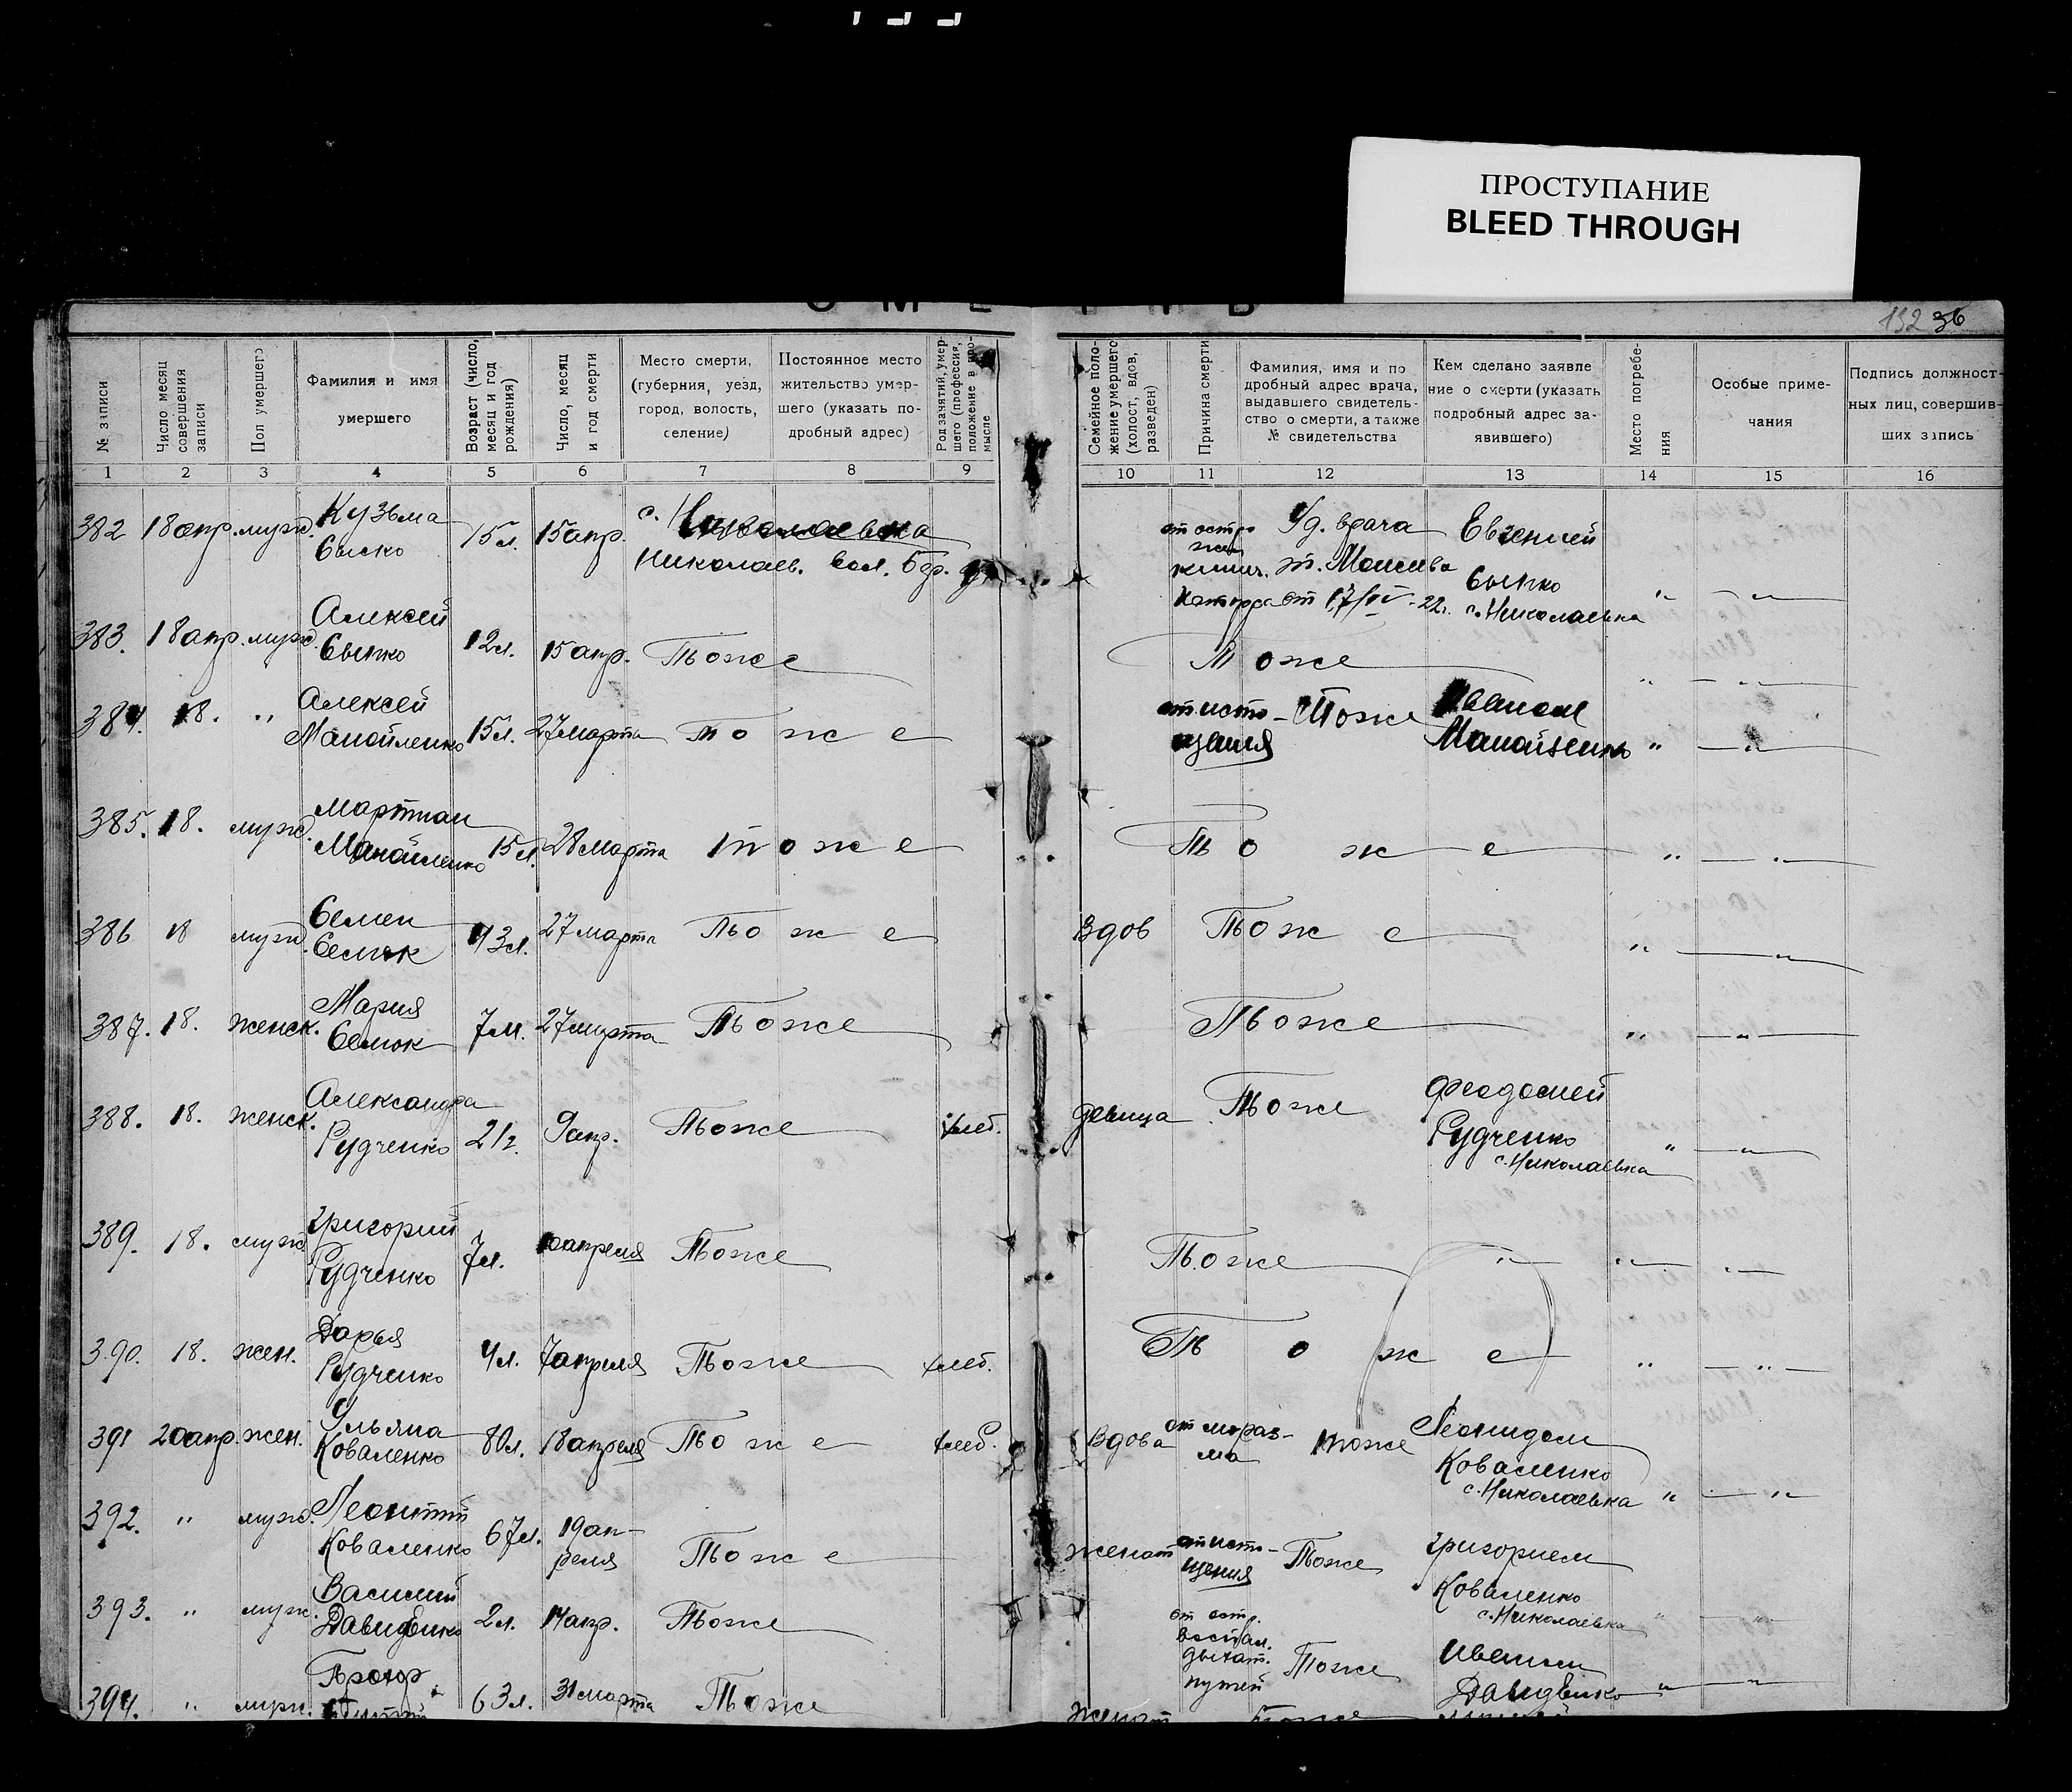 ПРОСТУПАНИЕ
BLEED THROUGH
132 36
№ записи
Число месяц совершения записи
Пол умершего
Фамилия и имя умершего
Возраст (число, месяц и год рождения)
Число, месяц и год смерти
Место смерти, (губерния, уезд, город, волость, селение)
Постоянное место жительство умершего (указать подробный адрес)
Род занятий, умершего (профессия, положение в промысле
Семейное положение умершего (холост, вдов, разведен)
Причина смерти
Фамилия, имя и подробный адрес врача, выдавшего свидетельство о смерти, а также № свидетельства
Кем сделано заявление о смерти (указать подробный адрес заявившего)
Место погребения
Особые примечания
Подпись должностных лиц, совершивших запись
1 2 3 4 5 6 7 8 9 10 11 12 13 14 15 16
382 18 апр. муж. Кузьма 15л. 15 апр. с. Николаевка
Николаев. вол.
от остро Уд. врача Евгений
от 17/IV-22г. с. Николаевка
383. 18 апр. муж. Алексей 12л. 15 апр. Тоже Тоже
384. 18. " Алексей Манойленко 15л. 27 марта Тоже от исто-щения Тоже Иваном Манойленко " — " —
385. 18. муж. Мартиан Манойленко 15л. 28 марта Тоже Тоже " — " —
386 18 муж. Семен Семок 43л. 27 марта Тоже Вдов Тоже " — " —
387. 18. женск. Мария Семок 7м. 27 марта Тоже Тоже " — " —
388. 18. женск. Александра Рудченко 21г. 9 апр. Тоже хлеб. девица Тоже Феодосией Рудченко с. Николаевка " — " —
389. 18. муж. Григорий Рудченко 7л. 10 апреля Тоже Тоже " " — " —
390. 18. жен. Дарья Рудченко 4л. 7 апреля Тоже хлеб. Тоже " — " —
391 20 апр. жен. Ульяна Коваленко 80л. 18 апреля Тоже хлеб. Вдова от мараз-ма тоже Леонидом Коваленко с. Николаевка " — " —
392. " муж. Леонтий Коваленко 67л. 19 ап-реля Тоже женат от исто-щения Тоже Григорием Коваленко с. Николаевка " — " —
393. " муж. Василий Давиденко 2л. 14 апр. Тоже от остр. воспал. дыхат. путей Тоже Иваном Давиденко " — " —
394. " муж. Прохор 63л. 31 марта Тоже женат Тоже